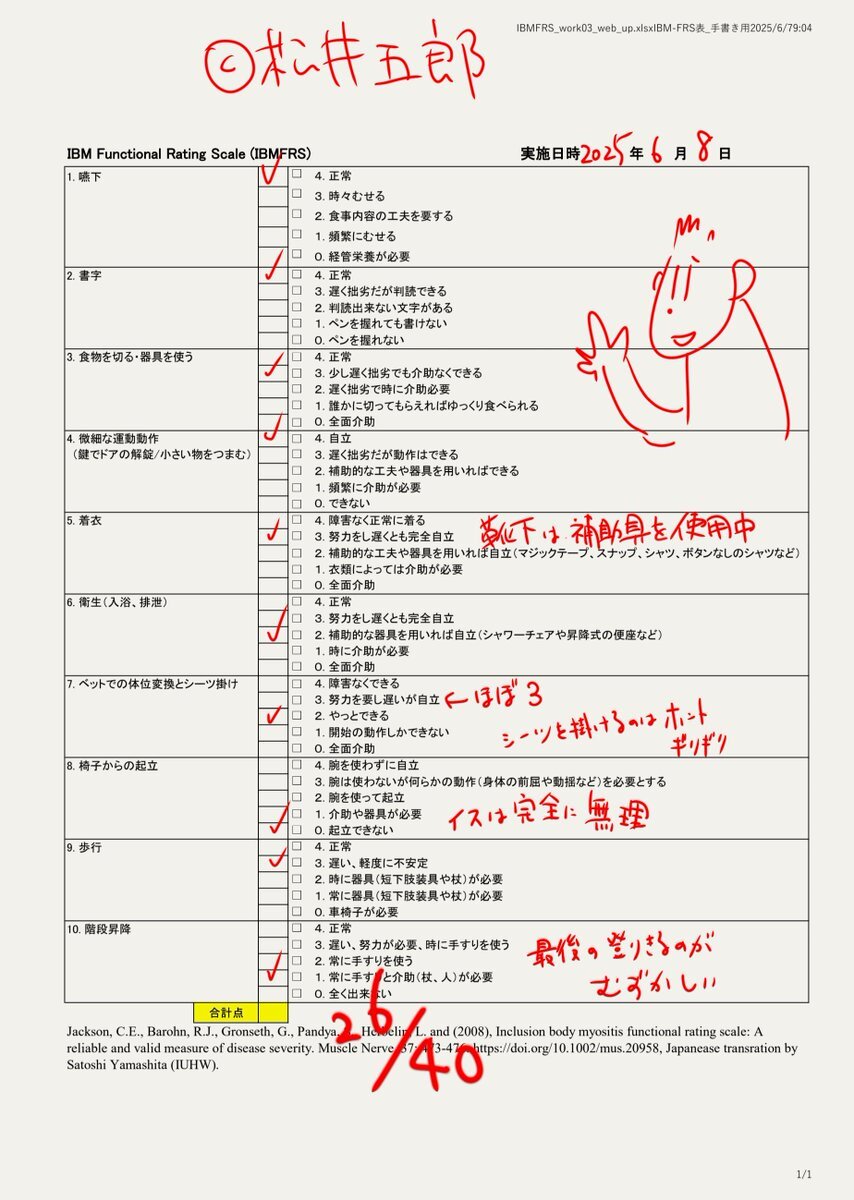 IBMFRS_work03_web_up.xlsxIBM-FRS表_手書き用2025/6/79:04
©松井五郎
IBM Functional Rating Scale (IBMFRS)
実施日時2025年6月8日
1. 嚥下
4. 正常
3. 時々むせる
2. 食事内容の工夫を要する
1. 頻繁にむせる
0. 経管栄養が必要
2. 書字
4. 正常
3. 遅く拙劣だが判読できる
2. 判読出来ない文字がある
1. ペンを握れても書けない
0. ペンを握れない
3. 食物を切る・器具を使う
4. 正常
3. 少し遅く拙劣でも介助なくできる
2. 遅く拙劣で時に介助必要
1. 誰かに切ってもらえればゆっくり食べられる
0. 全面介助
4. 微細な運動動作
（鍵でドアの解錠/小さい物をつまむ）
4. 自立
3. 遅く拙劣だが動作はできる
2. 補助的な工夫や器具を用いればできる
1. 頻繁に介助が必要
0. できない
5. 着衣
4. 障害なく正常に着る
3. 努力をし遅くとも完全自立
靴下は補助具を使用中
2. 補助的な工夫や器具を用いれば自立（マジックテープ、スナップ、シャツ、ボタンなしのシャツなど）
1. 衣類によっては介助が必要
0. 全面介助
6. 衛生（入浴、排泄）
4. 正常
3. 努力をし遅くとも完全自立
2. 補助的な器具を用いれば自立（シャワーチェアや昇降式の便座など）
1. 時に介助が必要
0. 全面介助
7. ベットでの体位変換とシーツ掛け
4. 障害なくできる
3. 努力を要し遅いが自立 ←ほぼ3
2. やっとできる
1. 開始の動作しかできない
0. 全面介助
シーツを掛けるのはホント
ギリギリ
8. 椅子からの起立
4. 腕を使わずに自立
3. 腕は使わないが何らかの動作（身体の前屈や動揺など）を必要とする
2. 腕を使って起立
1. 介助や器具が必要
0. 起立できない
イスは完全に無理
9. 歩行
4. 正常
3. 遅い、軽度に不安定
2. 時に器具（短下肢装具や杖）が必要
1. 常に器具（短下肢装具や杖）が必要
0. 車椅子が必要
10. 階段昇降
4. 正常
3. 遅い、努力が必要、時に手すりを使う
2. 常に手すりを使う
1. 常に手すりと介助（杖、人）が必要
0. 全く出来ない
最後の登りきるのが
むずかしい
合計点
26/40
Jackson, C.E., Barohn, R.J., Gronseth, G., Pandya, Herbelin, L. and (2008), Inclusion body myositis functional rating scale: A
reliable and valid measure of disease severity. Muscle Nerve, 37: 473-476. https://doi.org/10.1002/mus.20958, Japanease transration by
Satoshi Yamashita (IUHW).
1/1